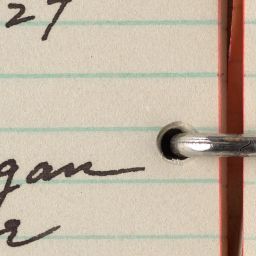 27
gan